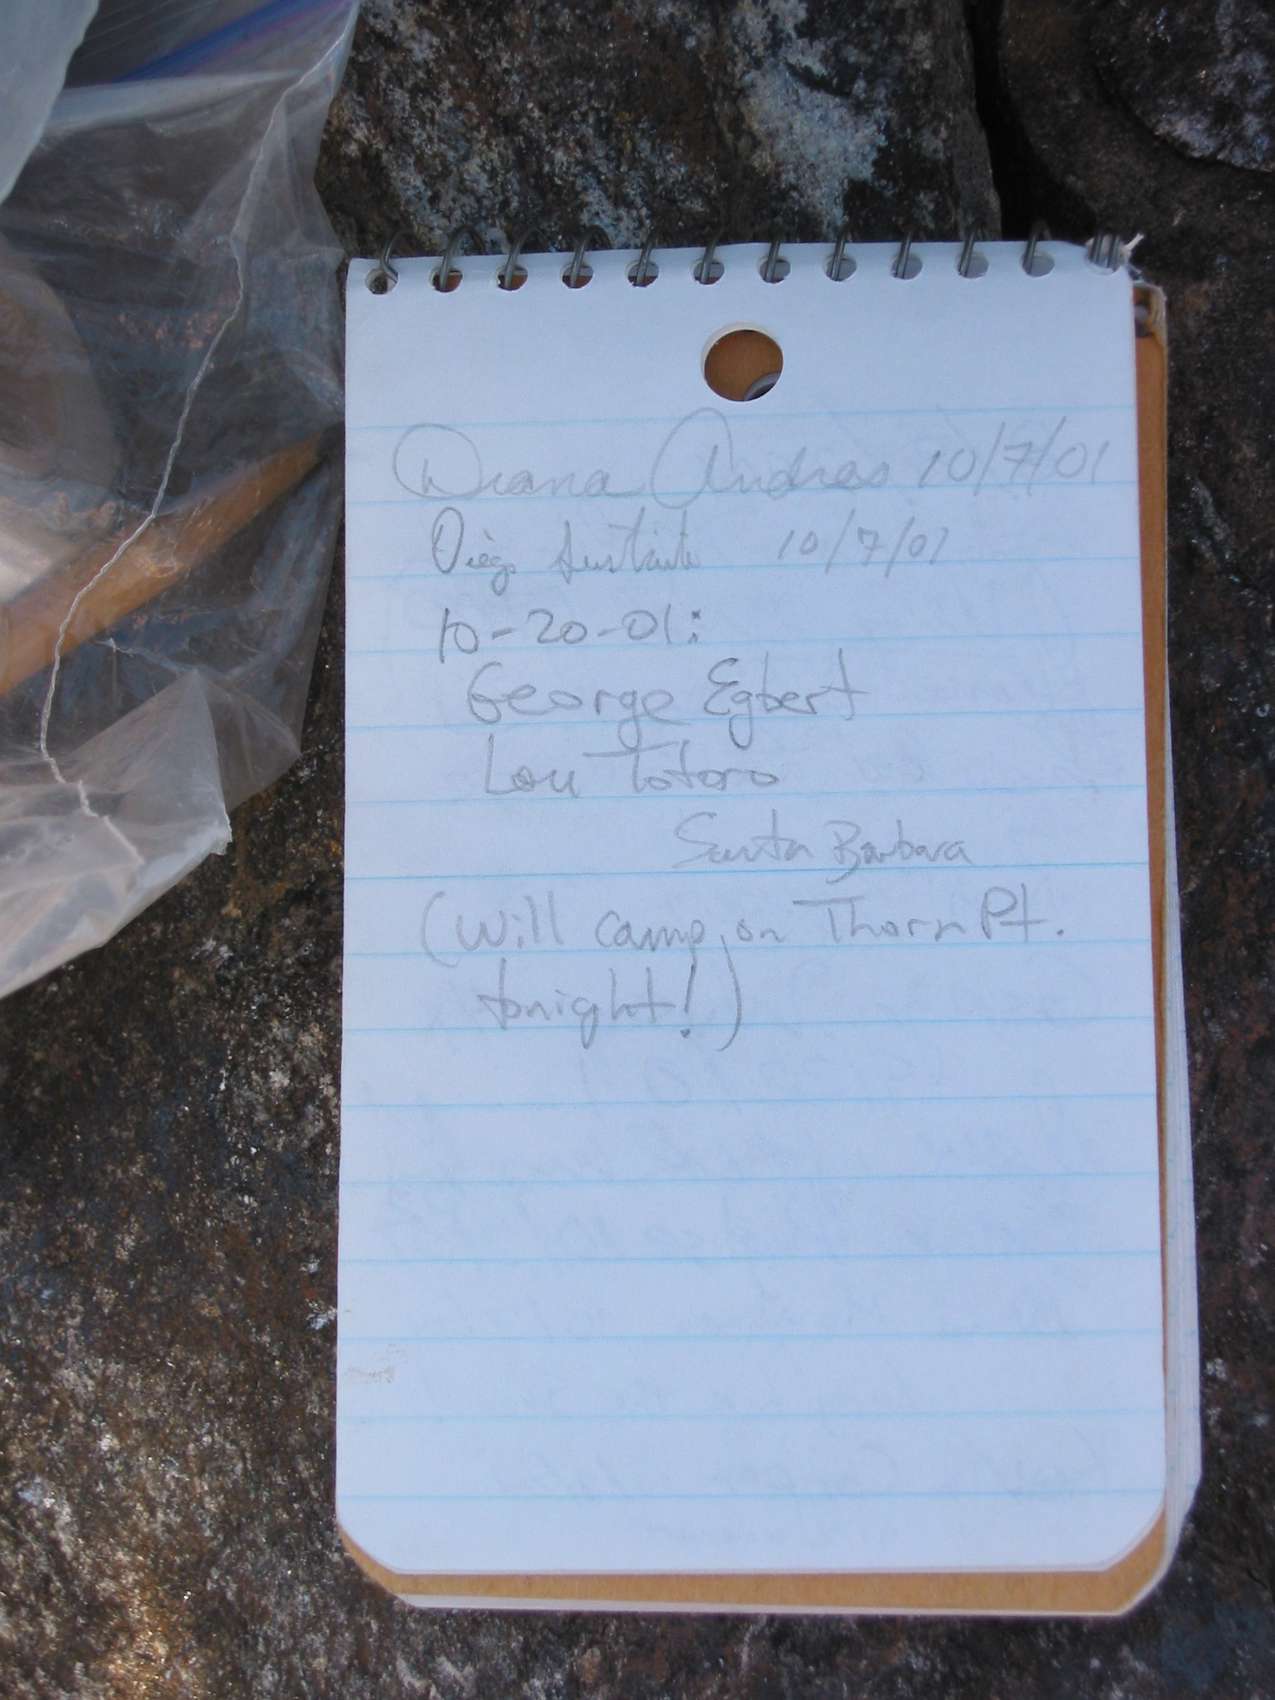 Diana Andres 10/7/01
Diego 10/7/01
10-20-01:
George Egbert
Lou Totoro
Santa Barbara
(Will camp on Thorn Pt.
tonight!)